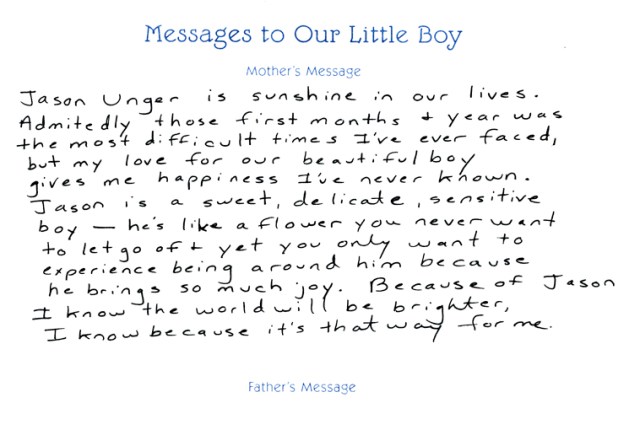 Messages to Our Little Boy
Mother's Message
Jason Unger is sunshine in our lives.
Admitedly those first months + year was
the most difficult times I've ever faced,
but my love for our beautiful boy
gives me happiness I've never known.
Jason is a sweet, delicate, sensitive
boy — he's like a flower you never want
to let go of + yet you only want to
experience being around him because
he brings so much joy. Because of Jason
I know the world will be brighter,
I know because it's that way for me.
Father's Message